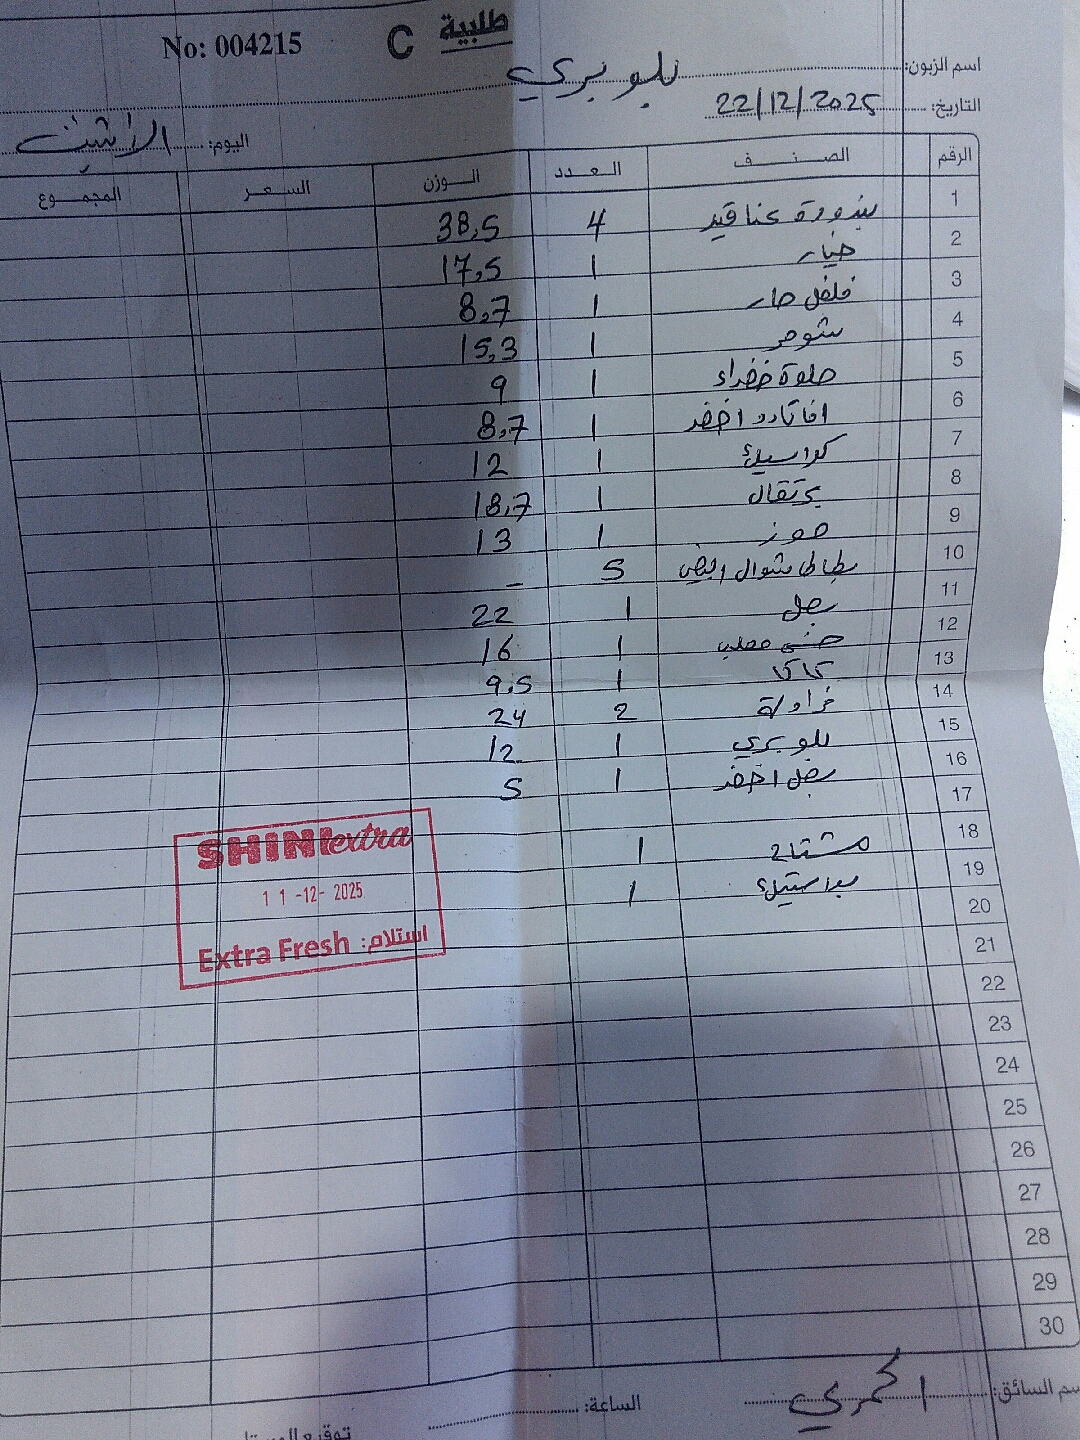 No: 004215
C
طلبية
اسم الزبون: بلو بري
التاريخ: 22/12/2025
اليوم: الاثنين
الرقم الصنف العدد الوزن السعر المجموع
1 بندورة عناقيد 4 38,5
2 خيار 1 17,5
3 فلفل حار 1 8,7
4 شومر 1 15,3
5 حلوة خضراء 1 9
6 افاكادو اخضر 1 8,7
7 1 12
8 برتقال 1 18,7
9 موز 1 13
10 بطاطا شوال ابيض 5 -
11 بصل 1 22
12 1 16
13 كاكا 1 9,5
14 فراولة 2 24
15 بلو بري 1 12
16 بصل اخضر 1 5
17
18 1
19 1
20
21
22
23
24
25
26
27
28
29
30
SHINI extra
11-12-2025
Extra Fresh استلام:
سم السائق:
الساعة: